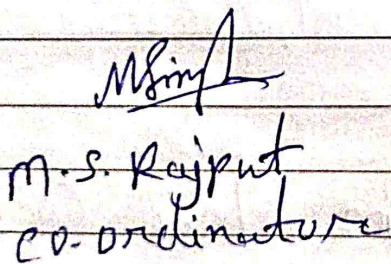 MSingh
M.S. Rajput
co-ordinature